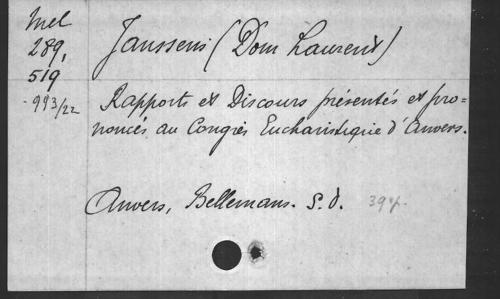 Mel
289,
519
-993/22
Janssens (Dom Laurent)
Rapports et Discours présentés et pro-
noncés au Congrès Eucharistique d'Anvers.
Anvers, Bellemans. S.d.